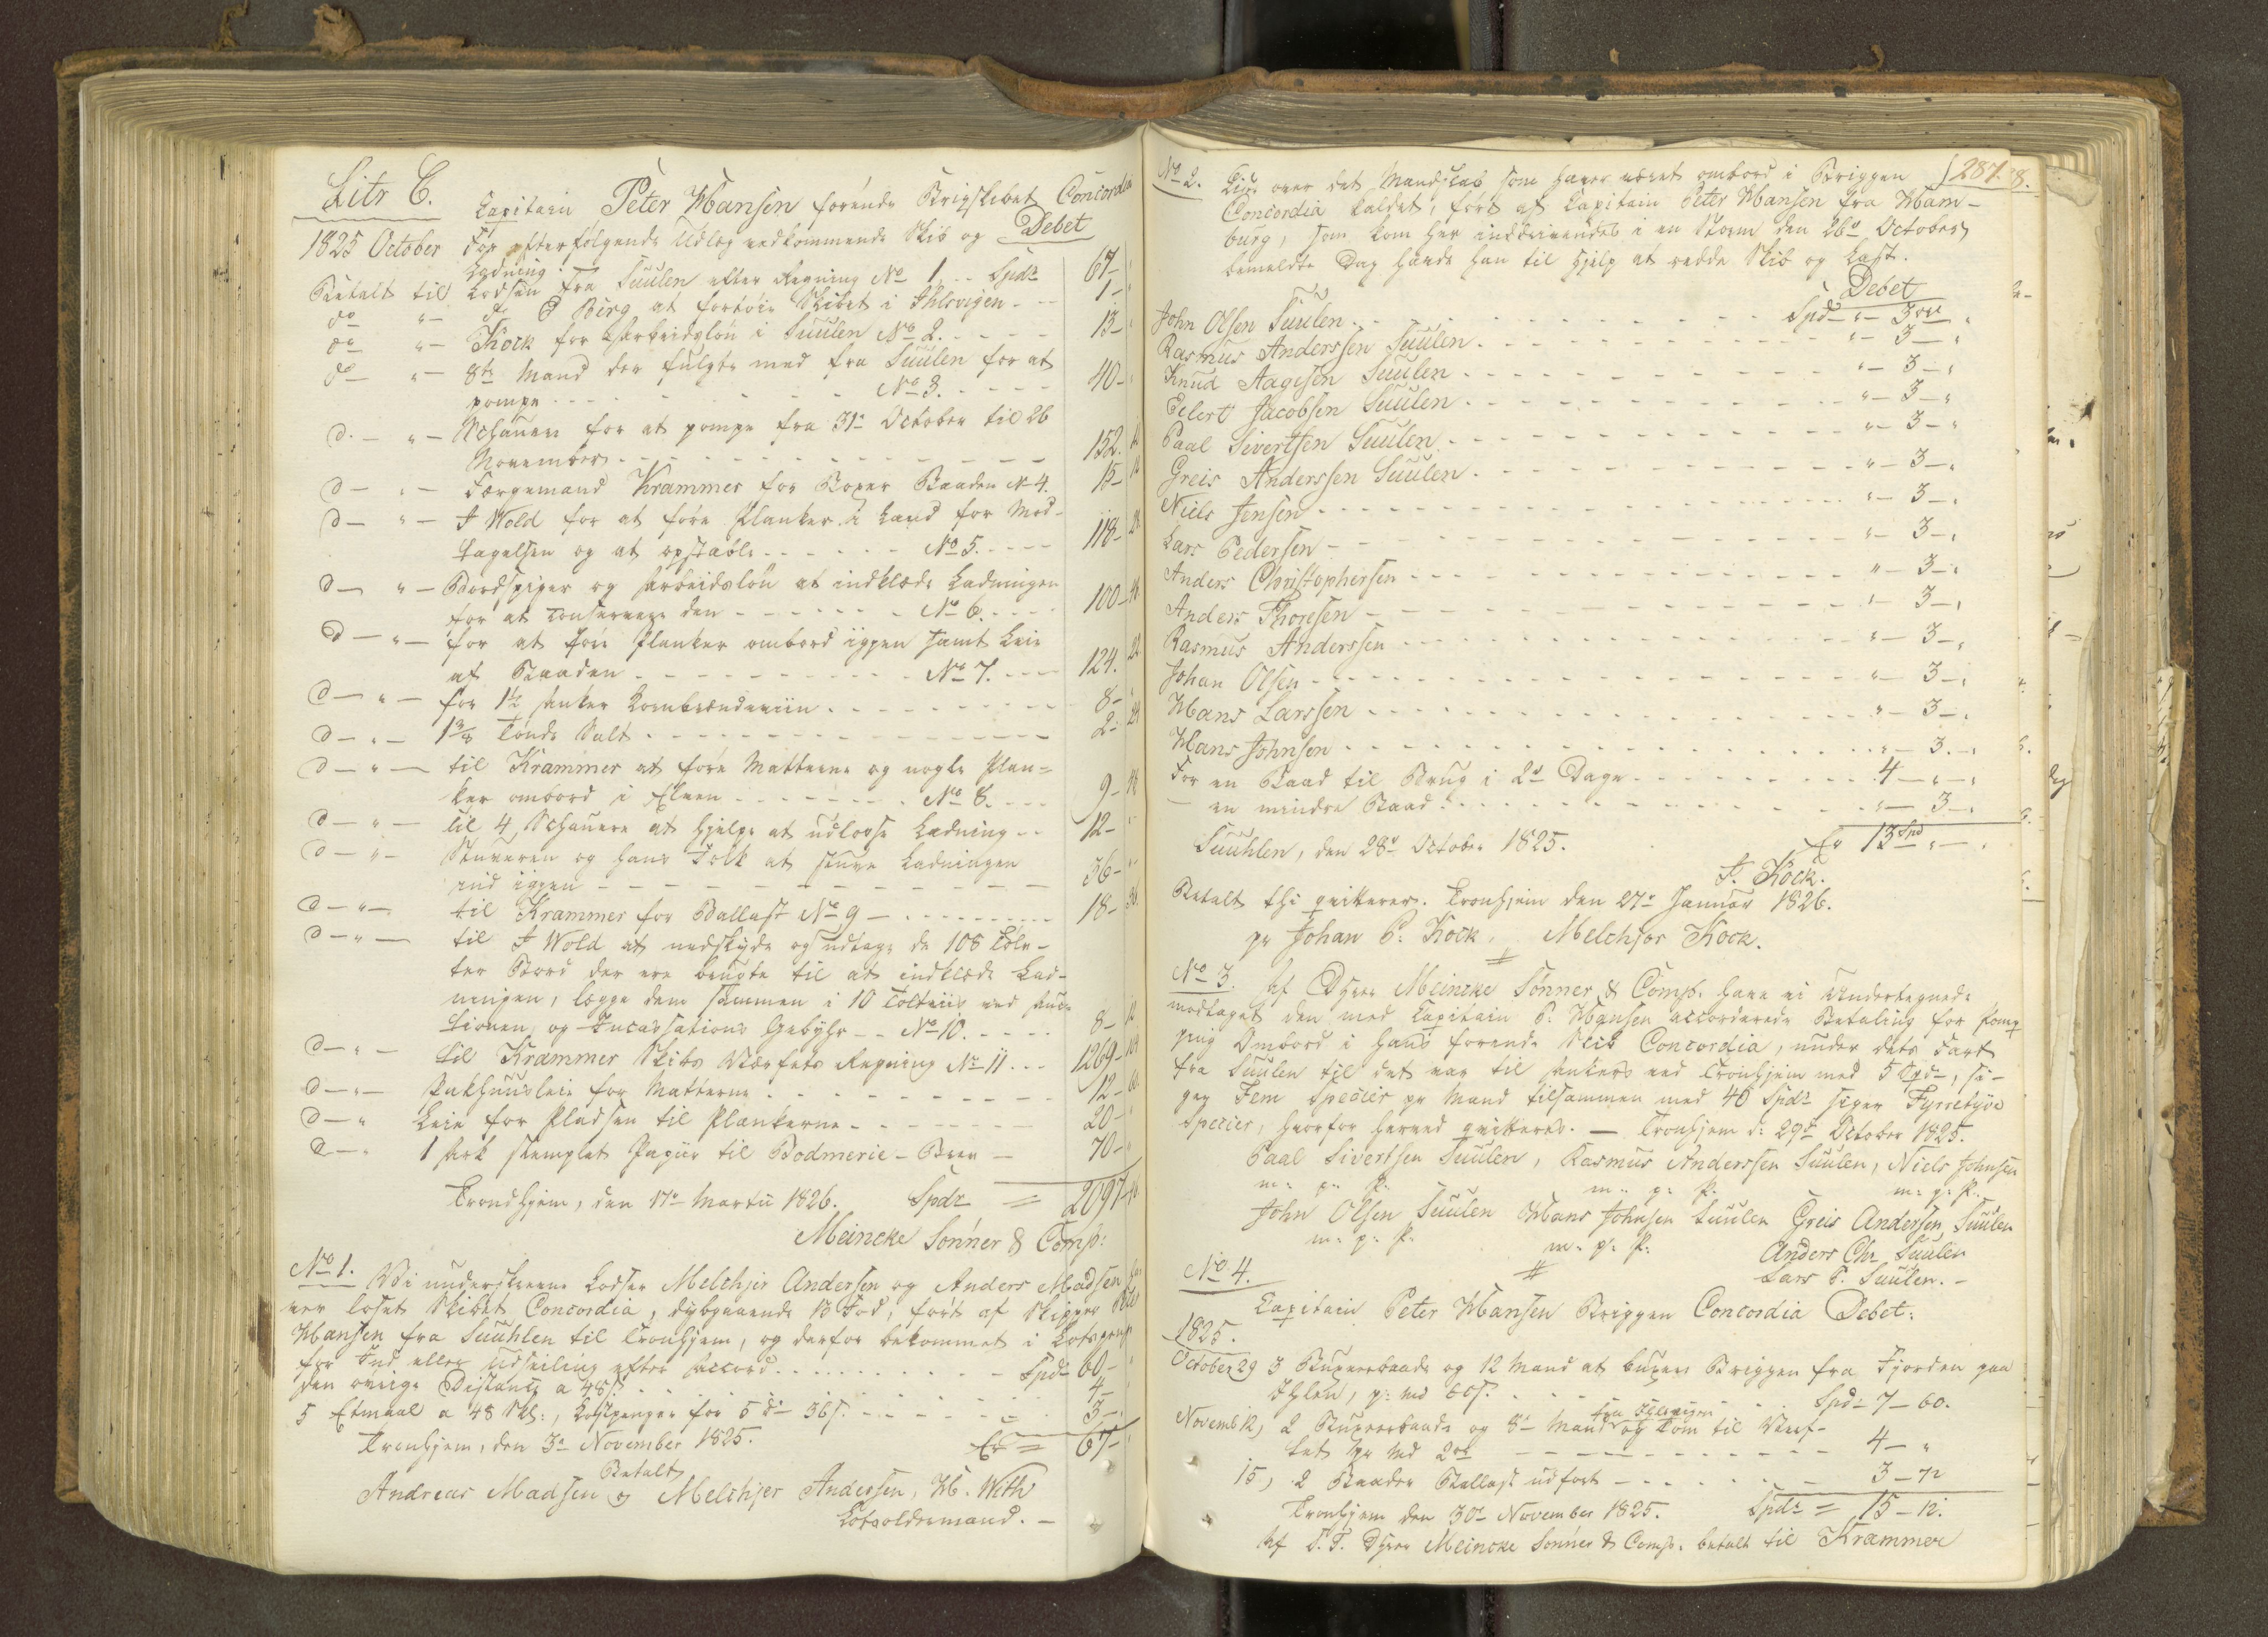 Litr C.
Capitain Peter Hansen förende Brigskibet Concordia
Debet
1825 October For efterfølgende Udlæg vedkommende Skib og
Ladning:
Betalt til Lodsen fra Suulen efter Regning No 1. - - Spdr 67-
do " - J. Berg at fortøie Skibet i Ihlsvigen - - - 1-
do " - Kock for Arbeidsløn i Suulen No 2. - - - - 13-
do " - 8te Mand der fulgte med fra Suulen for at
pompe - - - - No 3. - - - - 40-
d. - " - Schauere for at pompe fra 31te October til 26
November - - - - 152.
d - " - Færgemand Krammer for Boxer Baaden No 4. 15-
d - " - J Wold for at føre Planker i Land for Mod-
tagelsen og at opstable - - - - No 5. - - - 118-
d - " - Bordspiger og Arbeidsløn at indklæde Ladningen
for at conservere den - - - - No 6. - - - 100-
d - " - for at føre Planker ombord igjen samt Leie
af Baaden - - - - No 7. - - - 124.
d - " - for 1½ Anker Kornbrændeviin - - - - 8-
d - " - 1⅜ Tønde Salt - - - - 2-
d - " - til Krammer at føre Matterne og nogle Plan=
ker ombord i Elven - - - - No 8. - - - 9-
d - " - til 4 Schauere at hjelpe at udlosse Ladning - - 12-
d - " - Stuveren og hans Folk at stuve Ladningen
ind igjen - - - - 36-
d - " - til Krammer for Ballast No 9 - - - - 18-
d - " - til J Wold at nedskyde og udtage de 108 Tøl-
ter Bord der ere brugte til at indklæde Lad-
ningen, lægge dem sammen i 10 Tolteviis ved Auc-
tionen, og Incassations Gebyhr - - No 10. - - - 8-
d - " - til Krammer Skibs Værfets Regning No 11 - - - 1269-
d - " - Pakhuusleie for Matterne - - - - 12-
d - " Leie for Pladsen til Plankerne - - - - 20-
d - " 1 Ark stemplet Papiir til Bodmerie-Brev - 70-
Trondhjem, den 17de Martii 1826. Spdr = 2097-
Meincke Sønner & Comp:
No 1. Vi underskrevne Lodser Melchjer Andersen og Anders Madsen ha-
ver lodset Skibet Concordia, dybgaaende 13 Fod, ført af Skipper Peter
Hansen fra Suuhlen til Tronhjem, og derfor bekommet i Lotspenge
for Ind eller Udseiling efter Accord - - - - Spdr 60-
den øvrige Distance a 48 s. - - - - 4-
5 Etmaal a 48 Skl:, Kostpenger for 5 d= 36 s. - - - - 3-
Tronhjem, den 3de November 1825. Er = 67-
Betalt
Andreas Madsen og Melchjer Andersen, H. With
Lotsoldermand. -
287 8.
No 2. Liste over det Mandskab som haver været ombord i Briggen
Concordia kaldet, ført af Capitain Peter Hansen fra Ham-
burg, som kom her inddrivendes i en Storm den 26de October
bemeldte Dag havde han til Hjelp at redde Skib og Last.
Debet
John Olsen Suulen - - - - Spd - " - 3 ort "
Rasmus Anderssen Suulen - - - - " - 3 - "
Knud Aagesen Suulen - - - - " - 3 - "
Eelert Jacobsen Suulen - - - - " - 3 - "
Paal Sivertsen Suulen - - - - " - 3 - "
Greis Anderssen Suulen - - - - " - 3 - "
Niels Jensen - - - - " - 3 - "
Lars Pedersen - - - - " - 3 - "
Anders Christophersen - - - - " - 3 - "
Anders Thoresen - - - - " - 3 - "
Rasmus Anderssen - - - - " - 3 - "
Johan Olsen - - - - " - 3 - "
Hans Larssen - - - - " - 3 - "
Hans Johnsen - - - - " - 3 - "
For en Baad til Brug i 2de Dage - - - - 4 - " - "
- en mindre Baad - - - - " - 3 - "
Suuhlen, den 28de October 1825. Er 13 Spd " - "
J. Kock.
Betalt thi qvitteres. Tronhjem den 27de Januar 1826.
pr Johan P. Kock. Melchjor Kock.
No 3. Af DHerr Meincke Sønner & Comp. have vi Undertegnede
modtaget den med Capitain P. Hansen accorderede Betaling for Pomp-
ping Ombord i hans førende Skib Concordia, under dets Fart
fra Suulen til det var til Ankers ved Tronhjem med 5 Spdr, si-
ger Fem Species pr Mand tilsammen med 40 Spdr siger Fyrretyve
Species, hvorfor herved qvitteres. - Tronhjem d: 29de October 1825.
Paal Sivertsen Suulen, Rasmus Anderssen Suulen, Niels Johnsen
m: p: P. m: p: P. m: p: P.
John Olsen Suulen Hans Johnsen Suulen Greis Andersen Suulen
m: p: P. m: p: P. Anders Chr Suulen
Lars P. Suulen. -
No 4.
Capitain Peter Hansen Briggen Concordia Debet:
1825.
October 29 3 Buxeerbaade og 12 Mand at buxere Briggen fra Fjorden paa
Ihlen, pr: Md 60 s. - - - - Spd= 7 - 60.
Novemb 12, 2 Buxeerbaade og 8te Mand fra Ihlsvigen og Tom til Verf-
tet pr Md 2 ort - - - - 4 - "
15, 2 Baader Ballast udført - - - - 3 - 72
Tronhjem den 30te November 1825. Spdr = 15 - 12.
Af S.T. DHerr Meincke Sønner & Comp. betalt til Krammer